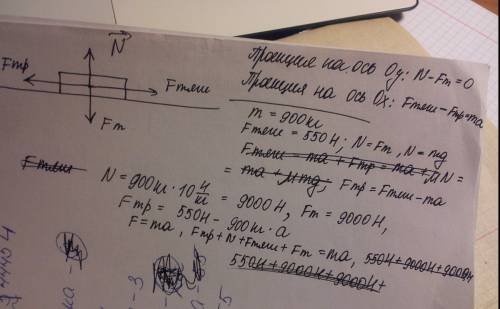 N
Fтр
Fтяги
Fт
Проекция на ось Oy: N-Fт=0
Проекция на ось Ox: Fтяги-Fтр=ma
m = 900кг
Fтяги = 550Н; N=Fт, N=mg
Fтяги = ma + Fтр = ma + μN =
= ma + μmg; Fтр = Fтяги - ma
Fтяги
N = 900кг · 10 Н/кг = 9000Н, Fт = 9000Н,
Fтр = 550Н - 900кг · a
F=ma, Fтр+N+Fтяги+Fт = ma, 550Н+9000Н+9000Н
550Н+9000Н+9000Н+